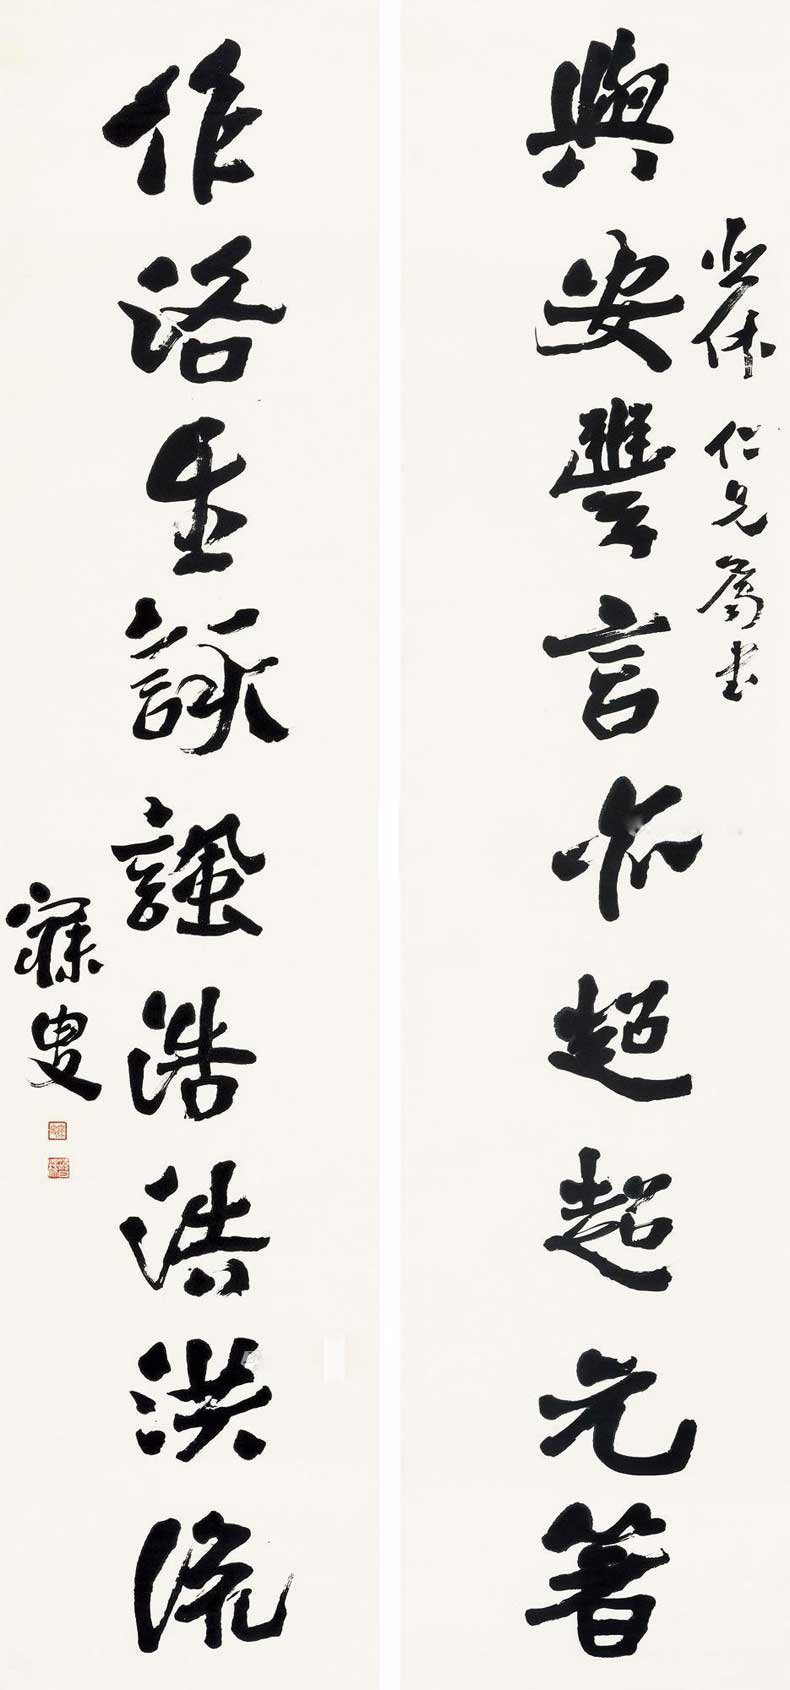 與安豐言亦超超元箸
休仁兄屬書
作洛生詠諷浩浩洪流
寐叟